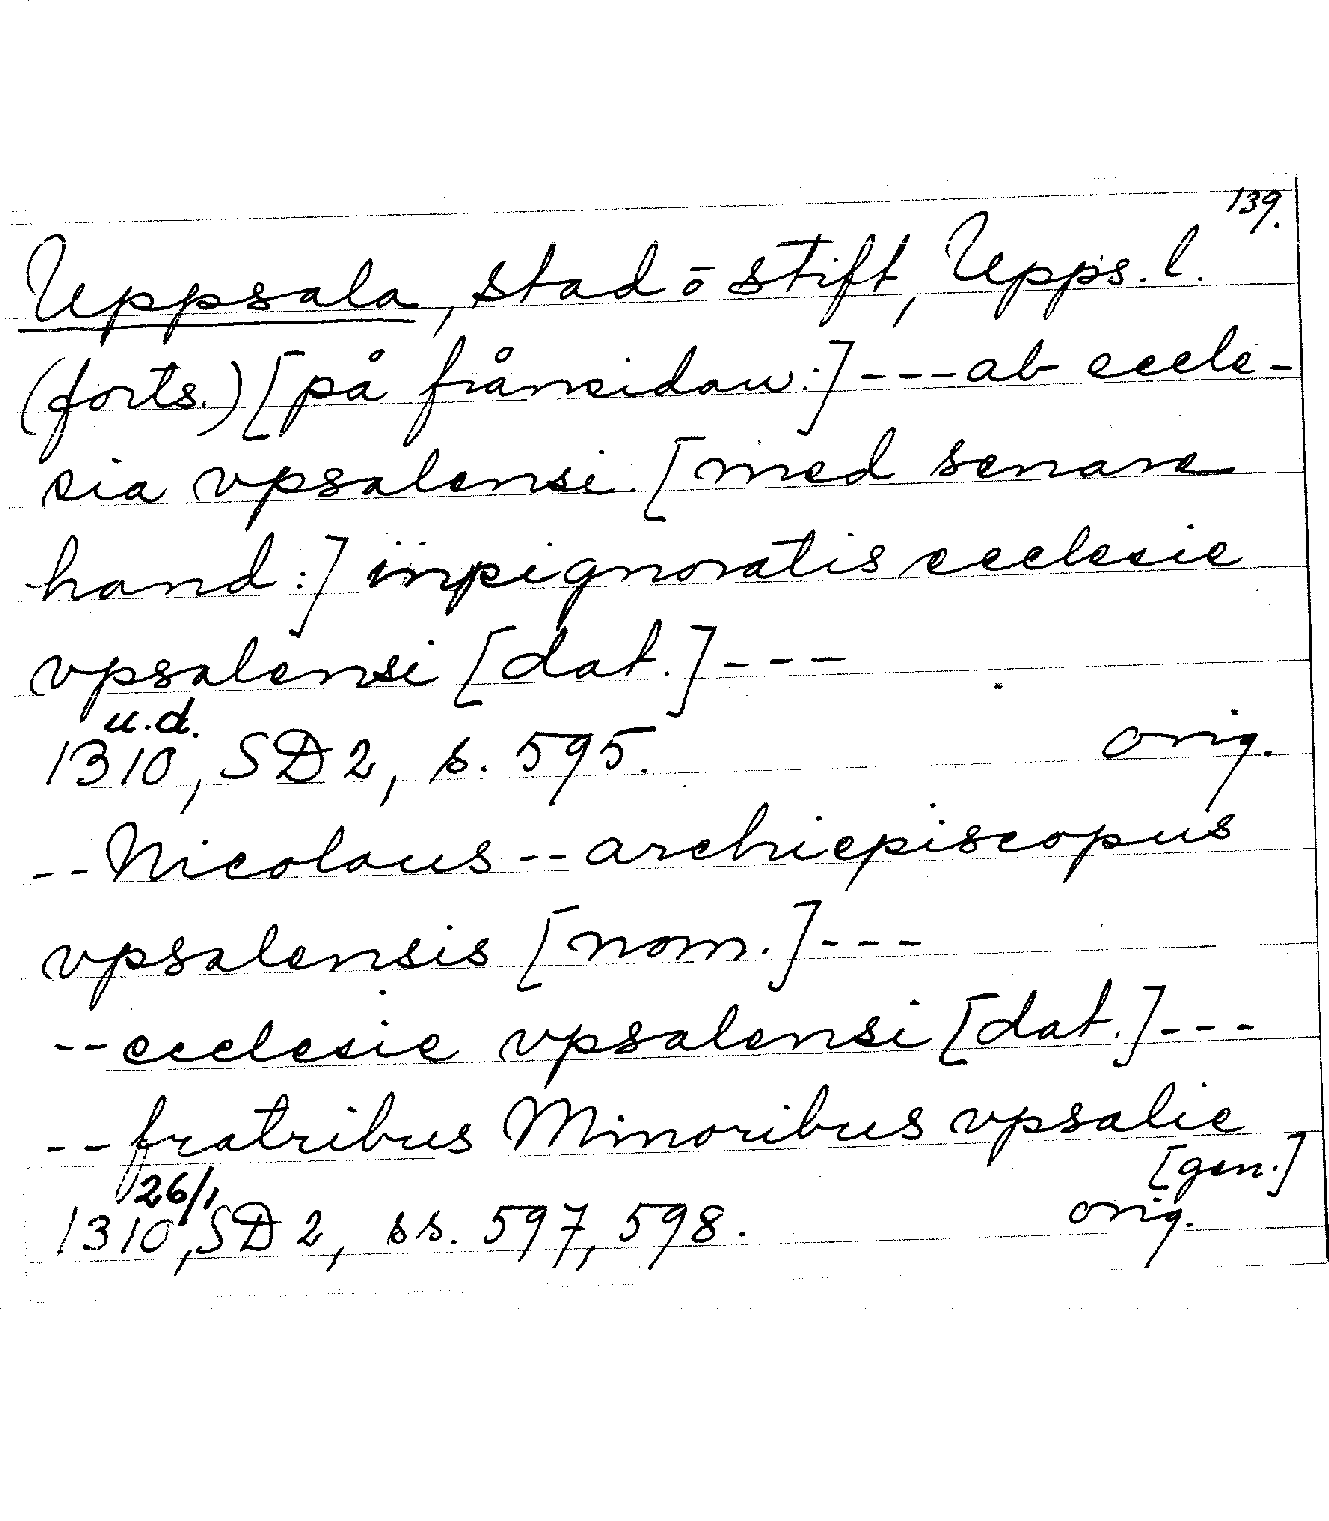 139.
Uppsala, stad ō stift, Upps. l.
(forts.) [på frånsidan:] --- ab eccle-
sia vpsalensi [med senare
hand:] inpignoratis ecclesie
vpsalensi [dat.] ---
u.d.
1310, SD 2, s. 595. orig.
-- Nicolaus -- archiepiscopus
vpsalensis [nom.] ---
-- ecclesie vpsalensi [dat.] ---
-- fratribus Minoribus vpsalie
[gen.]
26/1
1310, SD 2, ss. 597, 598. orig.